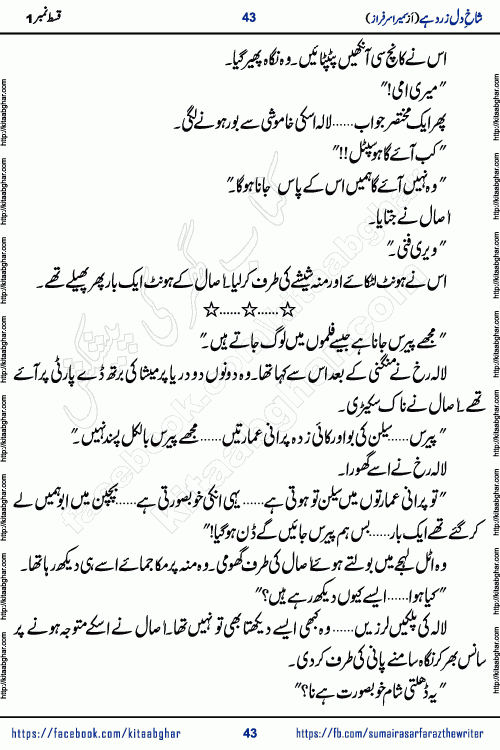 شاخِ دل زرد ہے (از سمیرا سرفراز) 43 قسط نمبر 1
اس نے کانچ سی آنکھیں پٹپٹائیں۔ وہ نگاہ پھیر گیا۔
"میری امی!"
پھر ایک مختصر جواب……لالہ اسکی خاموشی سے بور ہونے لگی۔
"کب آئے گا ہوسپٹل!!"
"وہ نہیں آئے گا ہمیں اس کے پاس جانا ہوگا۔"
اصال نے جتایا۔
"ویری فنی۔"
اس نے ہونٹ لٹکائے اور منہ شیشے کی طرف کر لیا۔ اصال کے ہونٹ ایک بار پھر پھیلے تھے۔
☆……☆……☆
"مجھے پیرس جانا ہے جیسے فلموں میں لوگ جاتے ہیں۔"
لالہ رخ نے منگنی کے بعد اس سے کہا تھا۔ وہ دونوں دو دریا پر میشا کی برتھ ڈے پارٹی پر آئے
تھے۔ اصال نے ناک سکیڑی۔
"پیرس……سیلن کی بو اور کائی زدہ پرانی عمارتیں……مجھے پیرس بالکل پسند نہیں۔"
لالہ رخ نے اسے گھورا۔
"تو پرانی عمارتوں میں سیلن تو ہوتی ہے……یہی انکی خوبصورتی ہے……بچپن میں ابو ہمیں لے
کر گئے تھے ایک بار……بس ہم پیرس جائیں گے ڈن ہو گیا!"
وہ اٹل لہجے میں بولتے ہوئے اصال کی طرف گھومی۔ وہ منہ پر مکا جمائے اسے ہی دیکھ رہا تھا۔
"کیا ہوا……ایسے کیوں دیکھ رہے ہیں؟"
لالہ کی پلکیں لرزیں……وہ کبھی ایسے دیکھتا بھی تو نہیں تھا۔ اصال نے اسکے متوجہ ہونے پر
سانس بھر کر نگاہ سامنے پانی کی طرف کر دی۔
"یہ ڈھلتی شام خوبصورت ہے نا؟"
https://facebook.com/kitaabghar 43 https://fb.com/sumairasarfarazthewriter
http://kitaabghar.com
کتاب گھر کی پیشکش
facebook.com/kitaabghar
kitaabghar.com